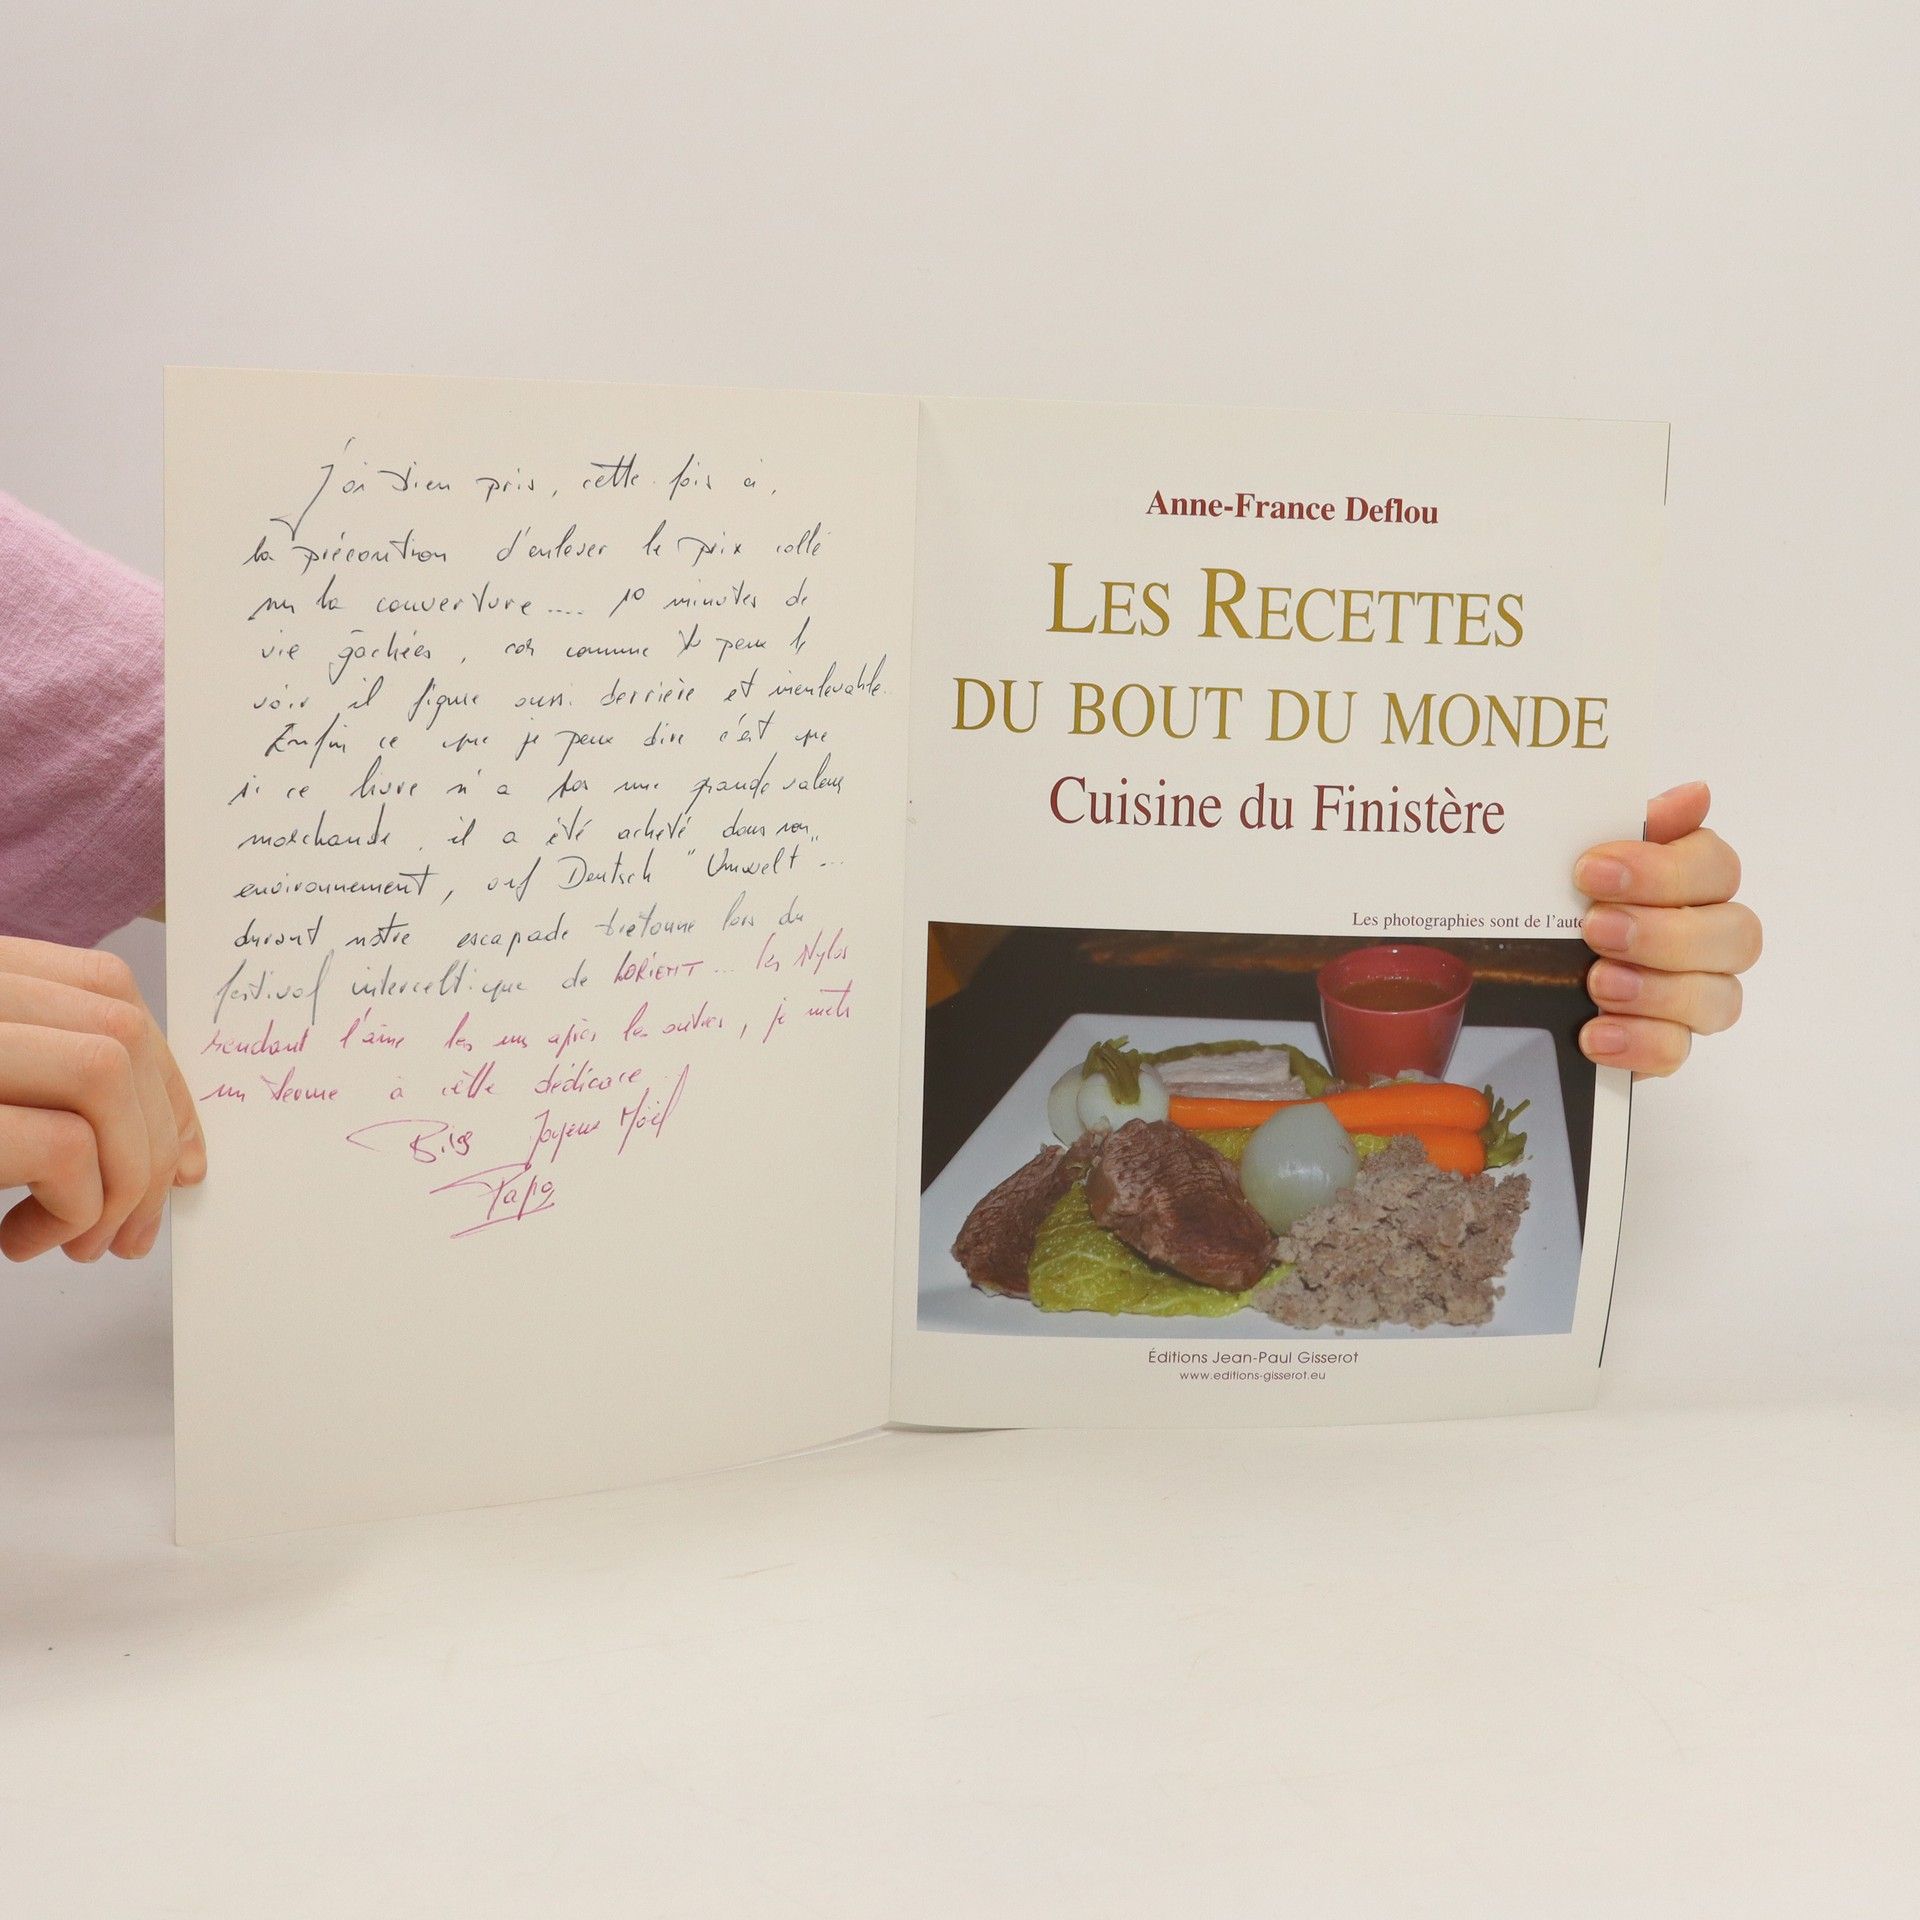 J'ai bien pris, cette fois ci,
la précaution d'enlever le prix collé
sur la couverture .... 10 minutes de
vie gâchées, car comme tu peux le
voir il figure aussi derrière et inenlevable.
Enfin ce que je peux dire c'est que
si ce livre n'a pas une grande valeur
marchande, il a été acheté dans son
environnement, auf Deutsch "Umwelt" ...
durant notre escapade bretonne lors du
festival interceltique de LORIENT ... les stylos
rendant l'âme les uns après les autres, je mets
un terme à cette dédicace
Bises Joyeux Noël
Papa
Anne-France Deflou
LES RECETTES
DU BOUT DU MONDE
Cuisine du Finistère
Les photographies sont de l'aute
Éditions Jean-Paul Gisserot
www.editions-gisserot.eu